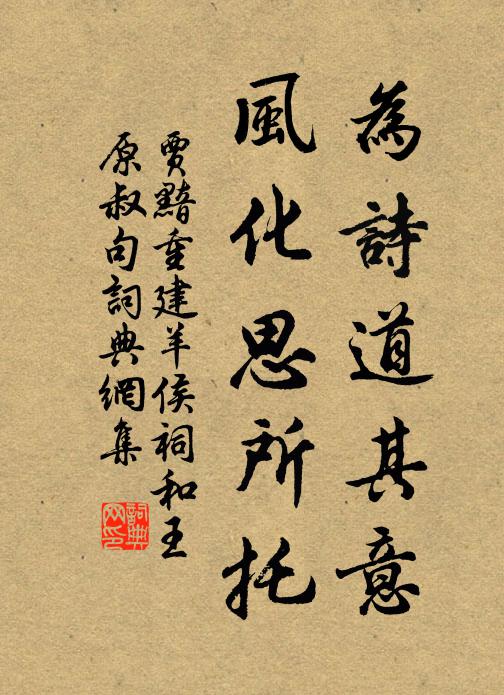 為詩道其意
風化思所托
賈黯重建羊侯祠和王
原叔句詞典網集
詞典
网印